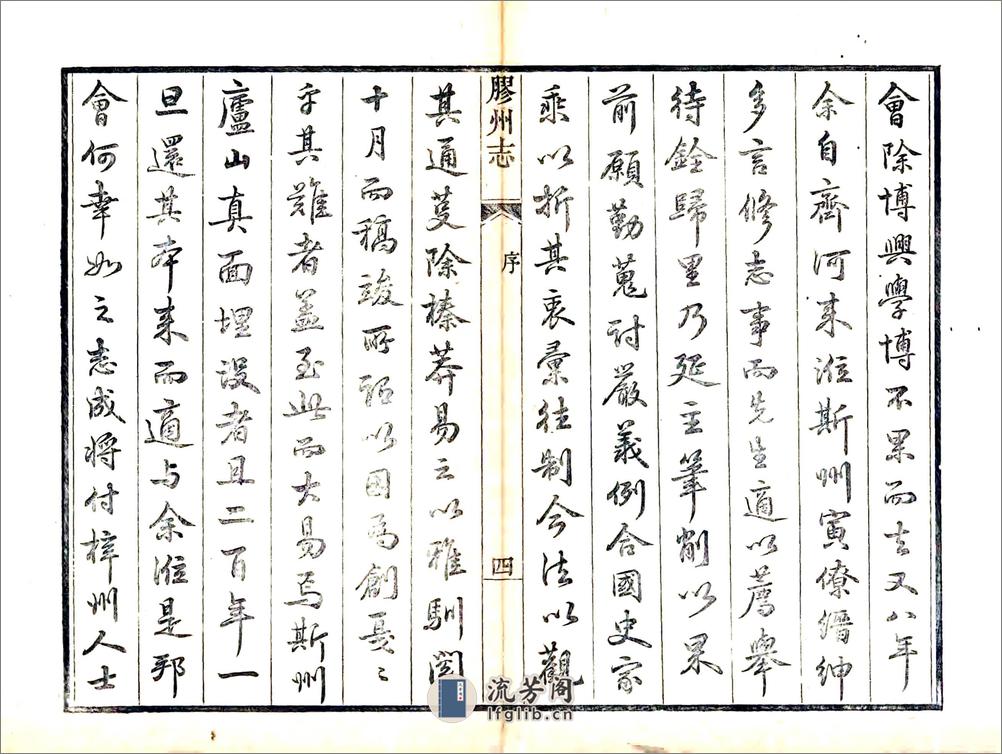 會除博興學博不果而去又八年
余自齊河来涖斯州寅僚縉紳
多言修志事而先生適以薦舉
待銓歸里乃延主筆削以果
前願勤蒐討嚴義例合國史家
乘以折其衷彙往制今法以觀
膠州志
序
四
其通芟除榛莽易之以雅馴閱
十月而稿竣所謂以因為創戛〻
乎其難者蓋至此而大易焉斯州
廬山真面埋没者且二百年一
旦還其本来而適与余涖是邦
會何幸如之志成将付梓州人士
流芳閣
lfglib.cn